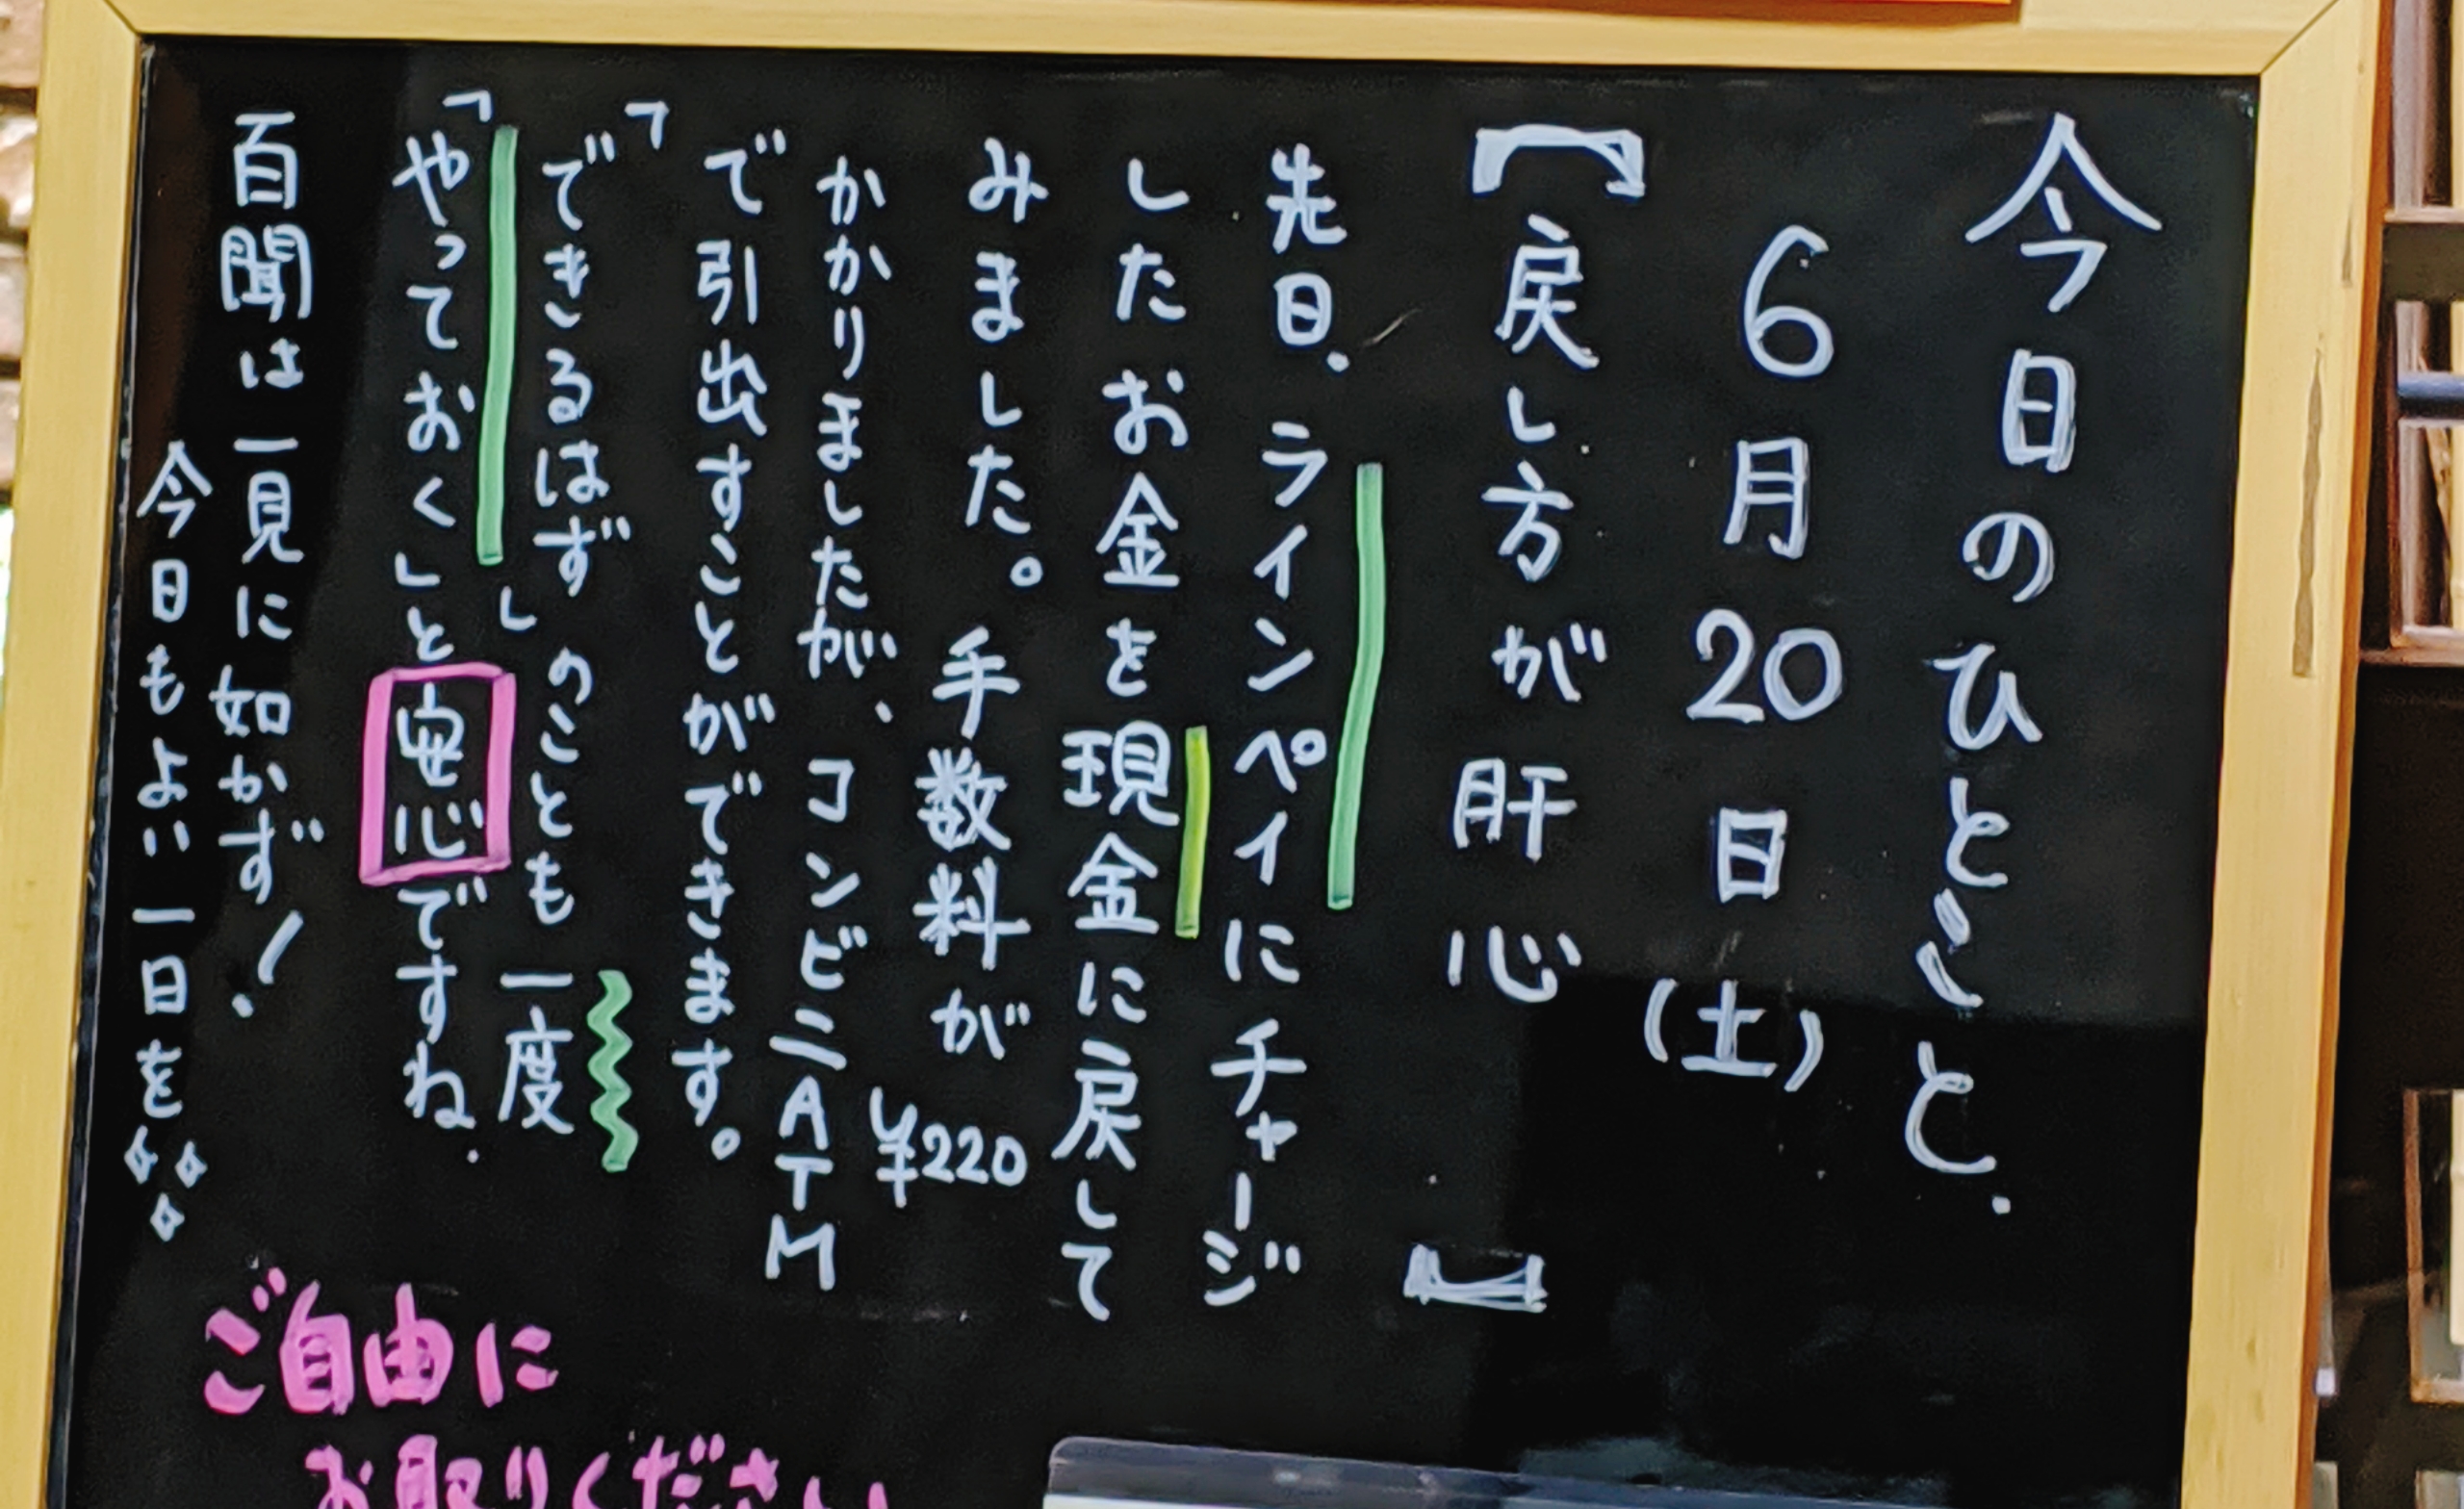 今日のひとこと.
6月20日(土)
【戻し方が肝心】
先日.ラインペイにチャージ
したお金を現金に戻して
みました。手数料が
¥220
かかりましたが、コンビニATM
で引出すことができます。
「できるはず」のことも一度
「やっておく」と安心ですね.
百聞は一見に如かず!
今日もよい一日を
ご自由に
お取りください